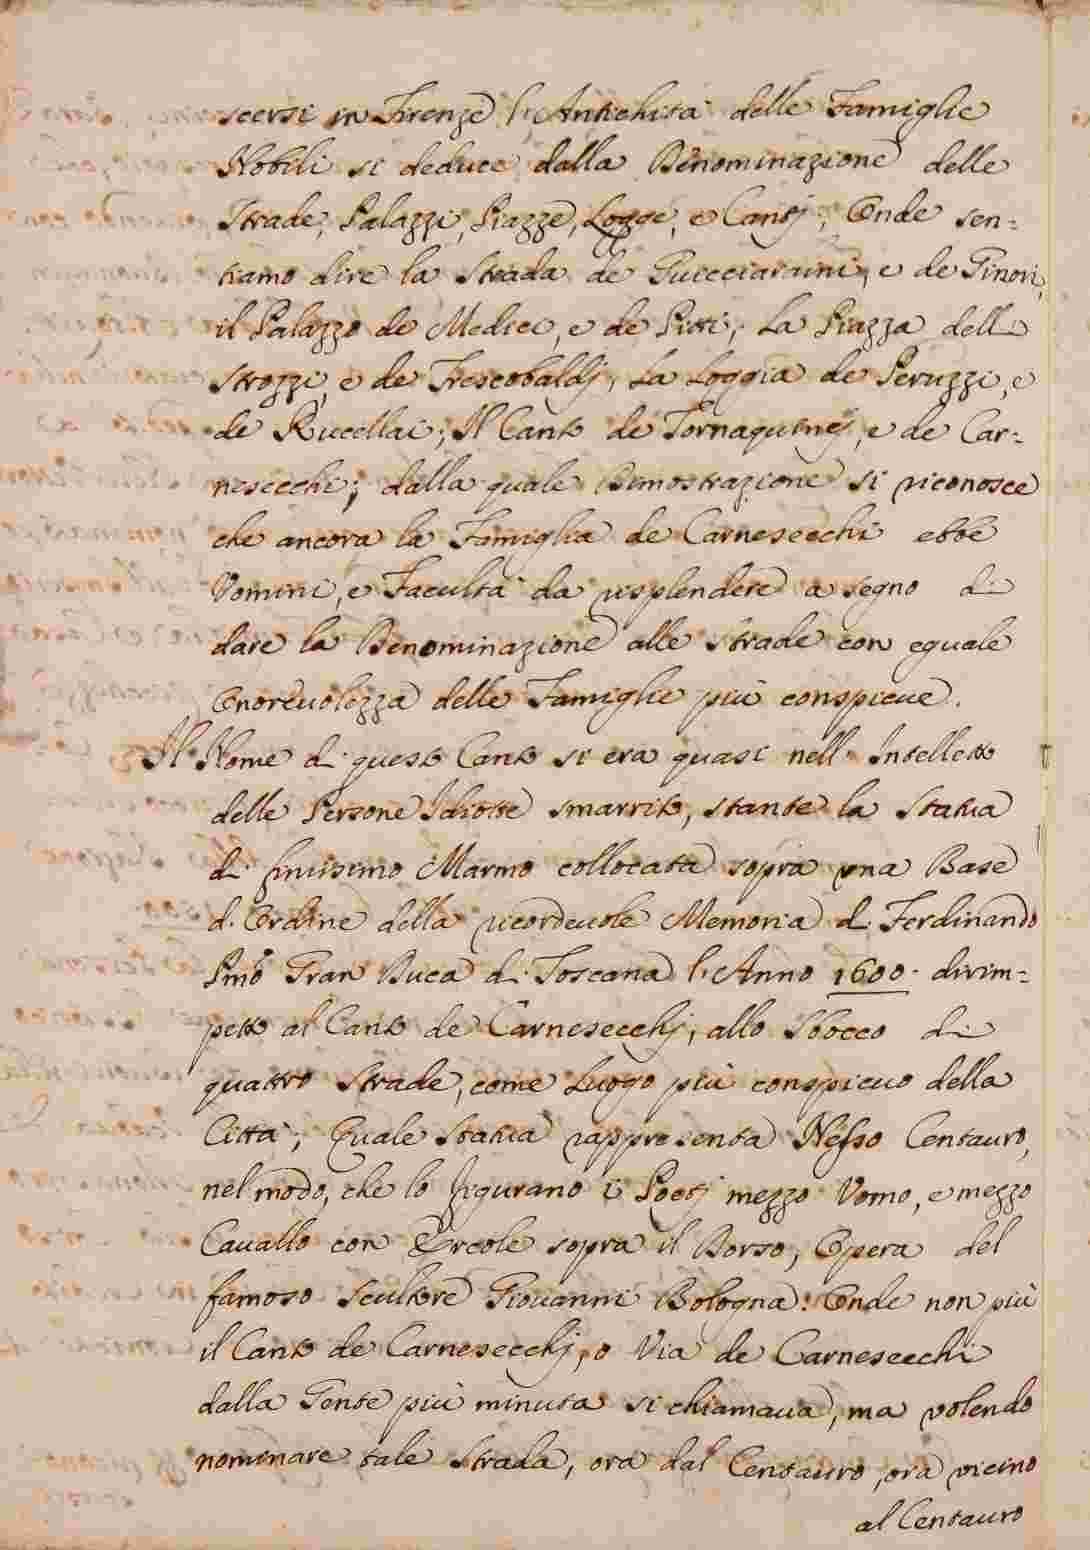 scersi in Firenze l'Antichità delle Famiglie
Nobili si deduce dalla Denominazione delle
Strade, Palazzi, Piazze, Logge, e Cantj; Onde sen=
tiamo dire la Strada de Guicciardini, e de Ginori,
il Palazzo de Medici, e de Pitti; La Piazza delli
Strozzi, e de Frescobaldj, La Loggia de Peruzzi, e
de Rucellai; Il Canto de Tornaquincj, e de Car=
nesecchi; dalla quale Dimostrazione si riconosce
che ancora la Famiglia de Carnesecchi ebbe
Vomini, e Facultà da risplendere a segno di
dare la Denominazione alle Strade con eguale
Onorevolezza delle Famiglie più conspicue.
Il Nome di questo Canto si era quasi nell'Intelletto
delle Persone Idiotte smarrito, stante la Statua
di finisimo Marmo collocata sopra una Base
d'Ordine della ricordevole Memoria di Ferdinando
Pmo Gran Duca di Toscana l'Anno 1600. dirim=
petto al Canto de Carnesecchj, allo Sbocco di
quattro Strade, come Luogo più conspicuo della
Città; Quale Statua rappresenta Nesso Centauro,
nel modo, che lo figurano i Poetj mezzo Vomo, e mezzo
Cauallo con Ercole sopra il Dorso, Opera del
famoso Scultore Giouanni Bologna: Onde non più
il Canto de Carnesecchj, o Via de Carnesecchi
dalla Gente più minuta si chiamaua, ma volendo
nominare tale Strada, ora dal Centauro, ora vicino
al Centauro